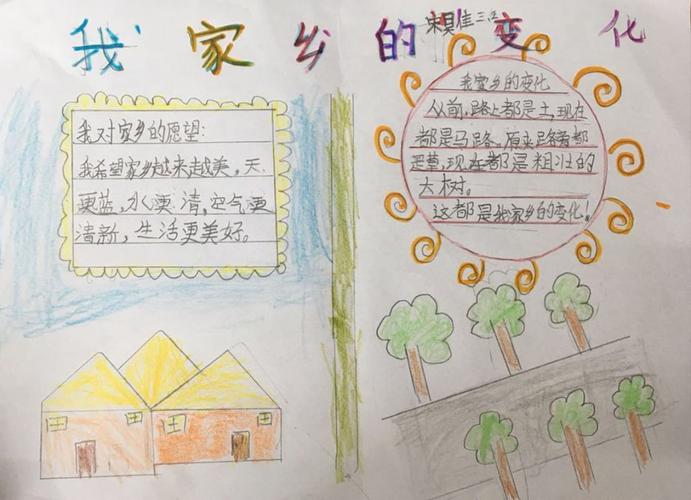 我家乡的变化
我对家乡的愿望:
我希望家乡越来越美,天
更蓝,水更清,空气更
清新,生活更美好。
我家乡的变化
从前,路上都是土,现在
都是马路。原来路旁都
是草,现在都是粗壮的
大树。
这都是我家乡的变化!